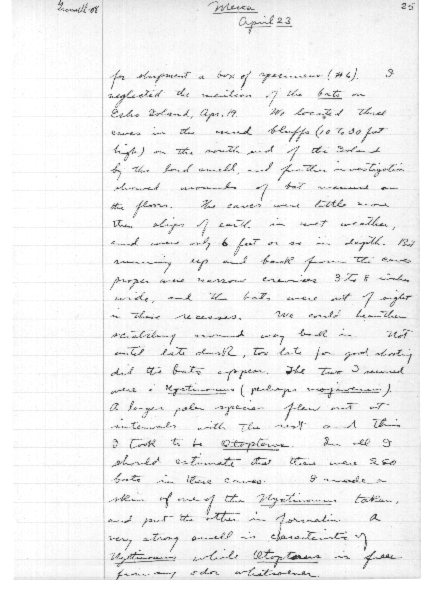 Grinnell-08
Mecca
25
April 23
for shipment a box of specimens (#6). I
neglected the mention of the bats on
Echo Island, Apr. 19. We located three
caves in the mud bluffs (10 to 30 feet
high) on the south end of the Island
by the bad smell, and further investigation
showed mounds of bat manure on
the floors. The caves were little more
than slips of earth in wet weather,
and were only 6 feet or so in depth. But
running up and back from the caves
proper were narrow crevices 3 to 8 inches
wide, and the bats were out of sight
in these recesses. We could hear them
scratching around way back in. Not
until late dusk, too late for good shooting
did the bats appear. The two I secured
were Nyctinomus (perhaps
A larger paler species flew out at
intervals with the rest and this
I took to be Otopterus. In all I
should estimate that there were 250
bats in these caves. I made a
skin of one of the Nyctinomus taken,
and put the other in formalin. A
very strong smell is characteristic of
Nyctinomus while Otopterus is free
from any odor whatsoever.